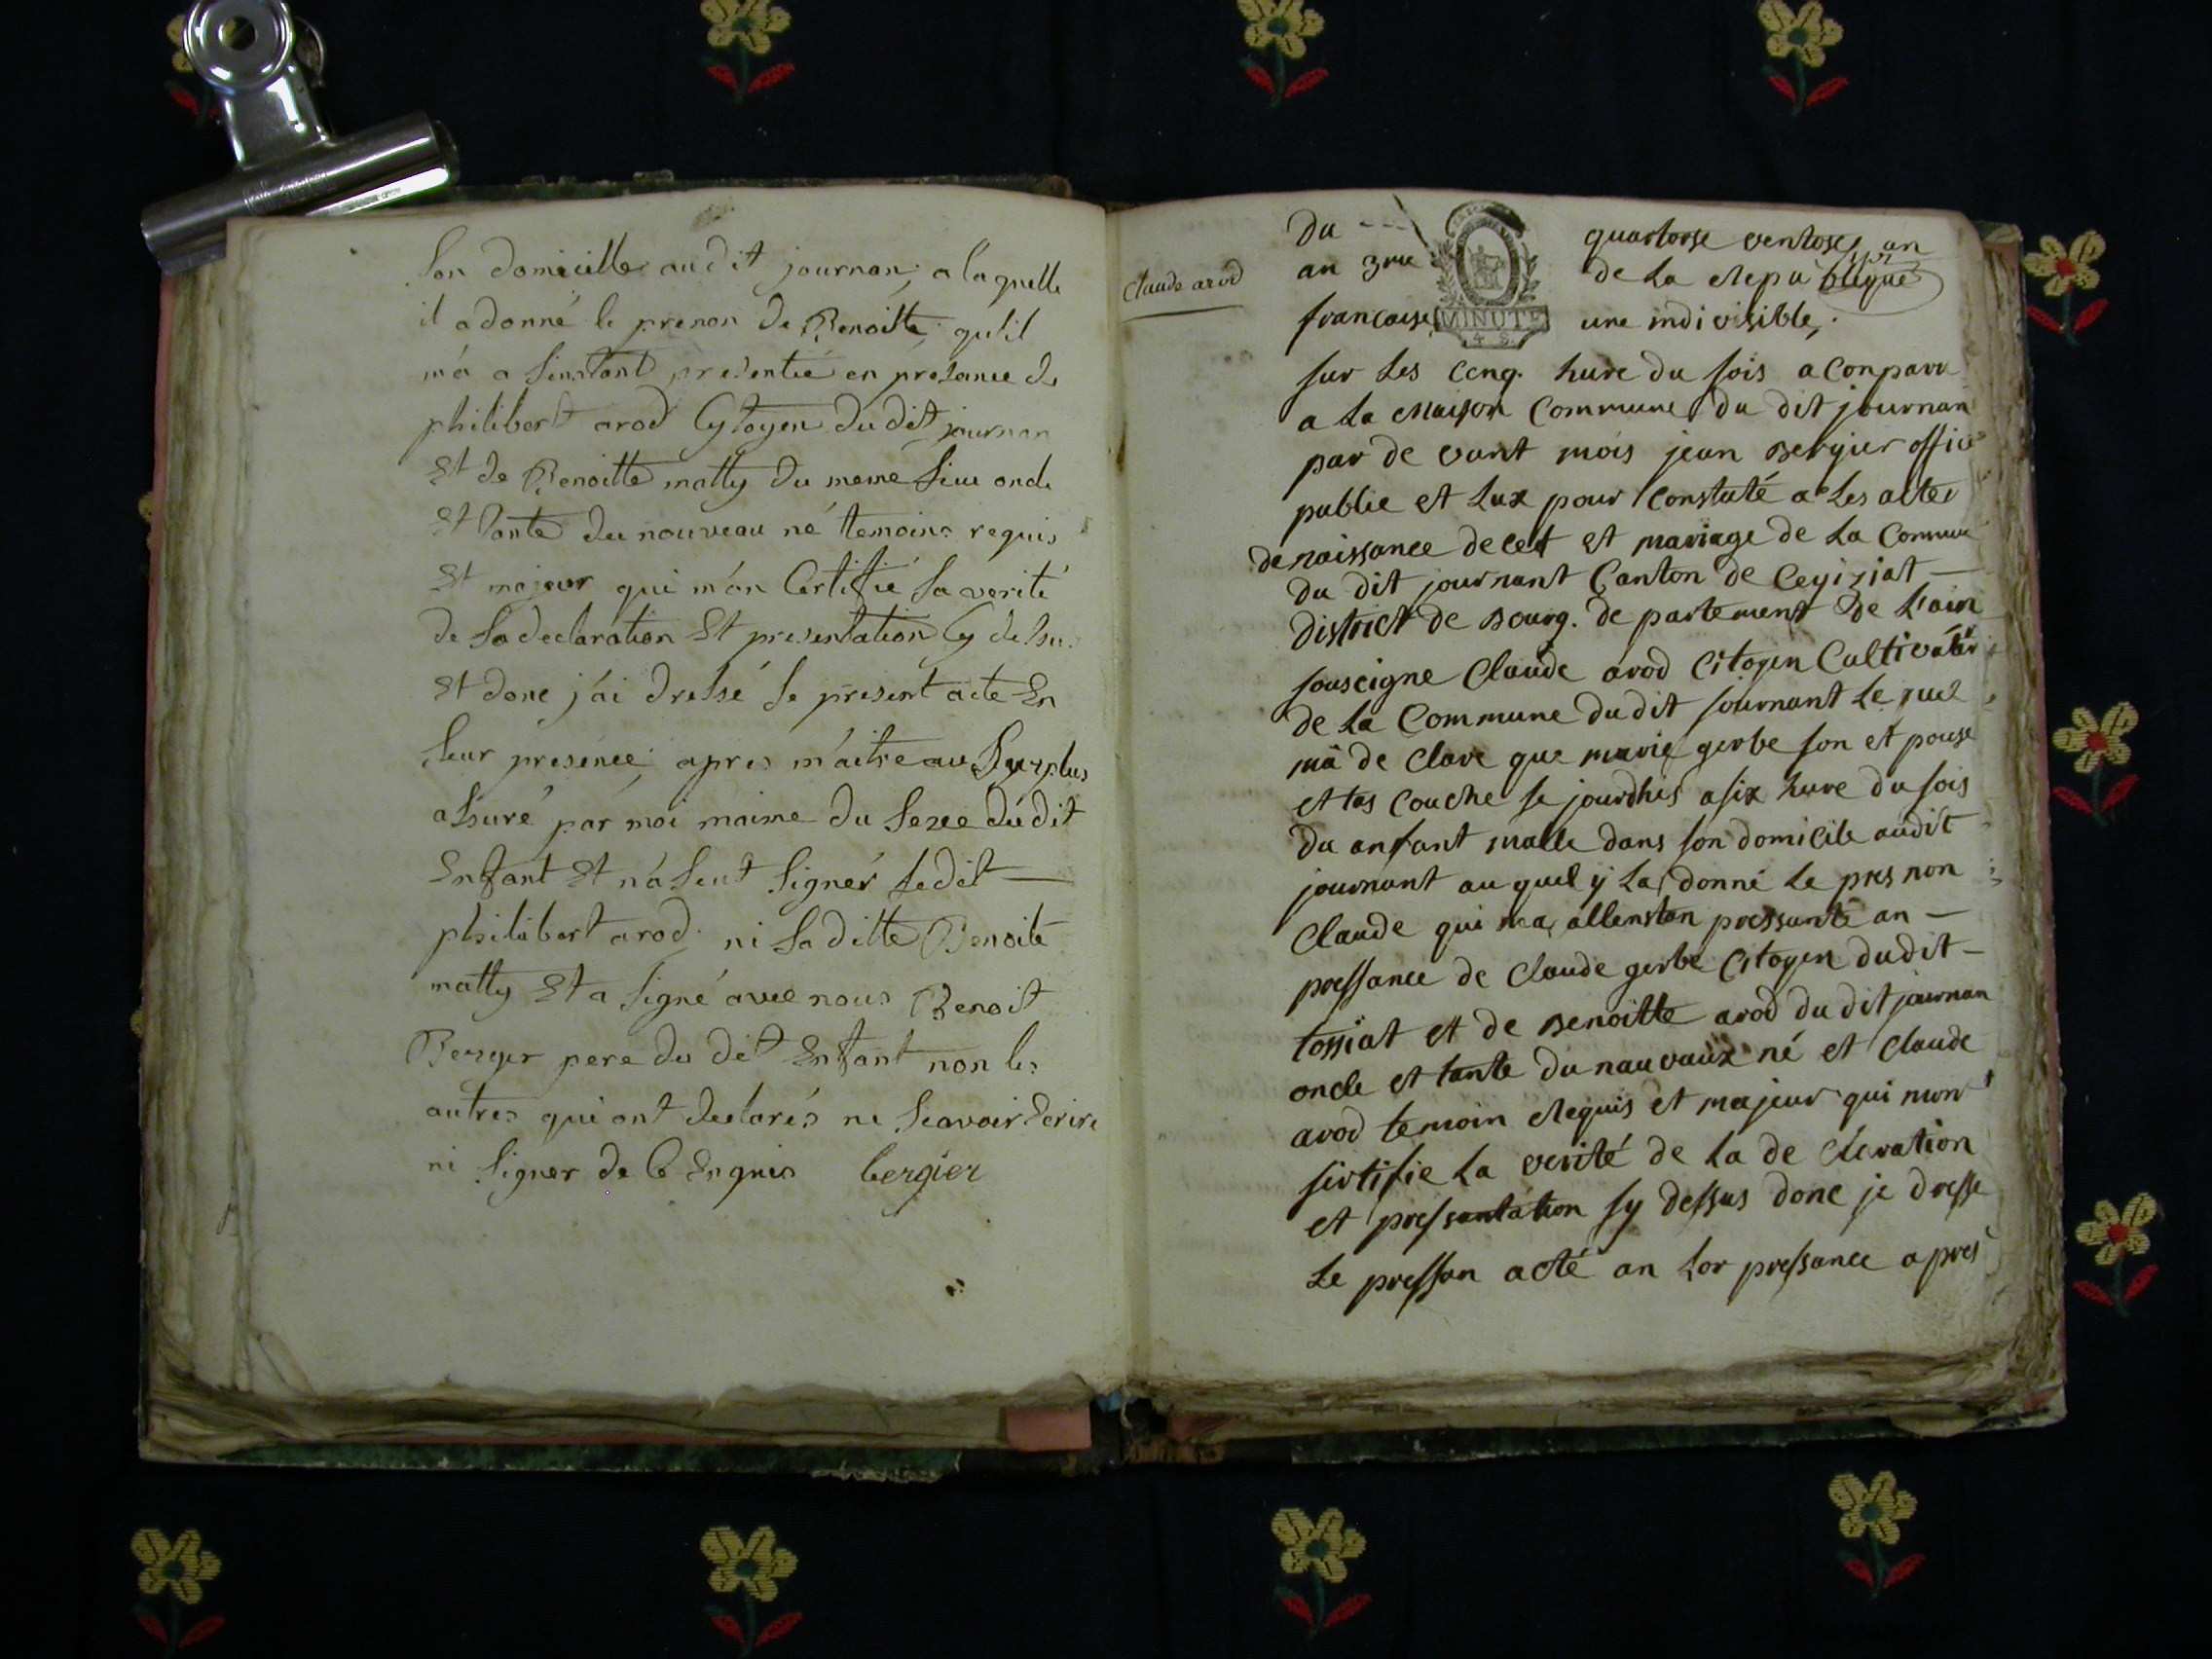 son domicille audit journan, a laquelle
il a donné le prenon de Benoitte, qu'il
m'a a linstant presentée en présance de
philibert arod Cytoyen dudit journan
Et de Benoitte matty du meme lieu oncle
Et tante du nouveau né temoins requis
Et majeur qui m'on Certifié la verité
de la declaration Et presentation Cy dessu
Et donc j'ai dressé le present acte En
leur presence, apres m'aitre au Surplus
assuré par moi maime du Sexe dudit
Enfant Et n'a seut signér ledit
philibert arod, ni laditte Benoite
matty Et a signé avec nous Benoit
Berger pere du dit Enfant non les
autres qui ont declarés ne Scavoir Ecrire
ni signer de Ce Enquis bergier
Claude arod
Du quartorse ventose, an
an 3me de La Republique
francaise une indivisible,
MINUTE
4 S.
sur Les Cenq. hure du sois a Conparu
a La Maison Commune du dit journan
par de vant mois jean Bergier offic
public et Lux pour Constaté a Les actes
de naissance decet et mariage de La Commune
du dit journant Canton de Ceyziat
District de Bourg. de partement de L'ain
souseigne Claude arod Citoyen Cultivater
de La Commune dudit journant Le quel
mâ de Clare que marie gerbe son et pouse
et tas Couche se jourdhui a six hure du sois
du anfant malle dans son domicile audit
journant au quel y La donné Le pres non
Claude qui ma allenstan pressanté an
pressance de Claude gerbe Citoyen dudit
tossiat et de Benoitte arod du dit journan
oncle et tante du nauvaux né et Claude
arod temoin Requis et majeur qui mon
sirtifie La verité de La de Claration
et pressantation sy dessus donc je dresse
Le pressan acté an Lor pressance apres